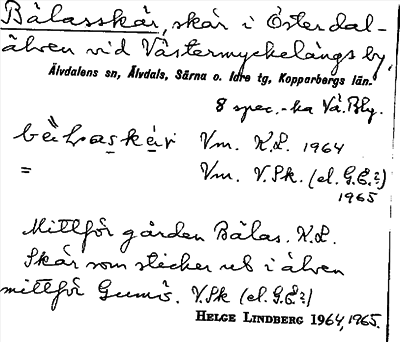 Bälasskär, skär i Österdal-
älven vid Västermyckelängs by,
Älvdalens sn, Älvdals, Särna o. Idre tg, Kopparbergs län.
8 spec.-ka Vä. Bly.
Vm. K.L. 1964
= Vm. V.Sk. (el. G.E.?)
1965
Mittför gården Bälas. K.L.
Skär som sticker ut i älven
mittför Gumis. V.Sk (el. G.E.?)
HELGE LINDBERG 1964, 1965.